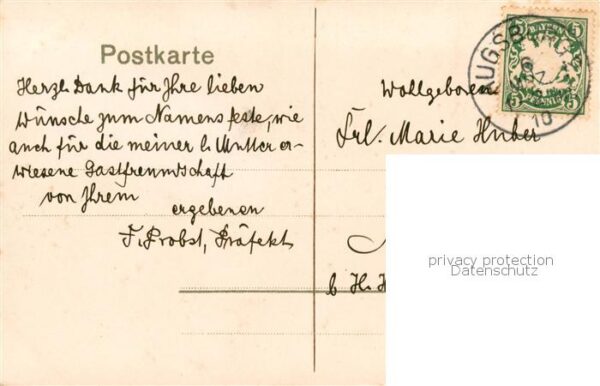 Postkarte
Herzl. Dank für Ihre lieben
Wünsche zum Namensfeste, wie
auch für die meiner l. Mutter er-
wiesene Gastfreundschaft
von Ihrem
ergebenen
F. Probst, Präfekt
AUGSBURG
10
BAYERN
5 5
5 5
PFENNIG
Wohlgeboren
Frl. Marie Huber
b. H. H
privacy protection
Datenschutz